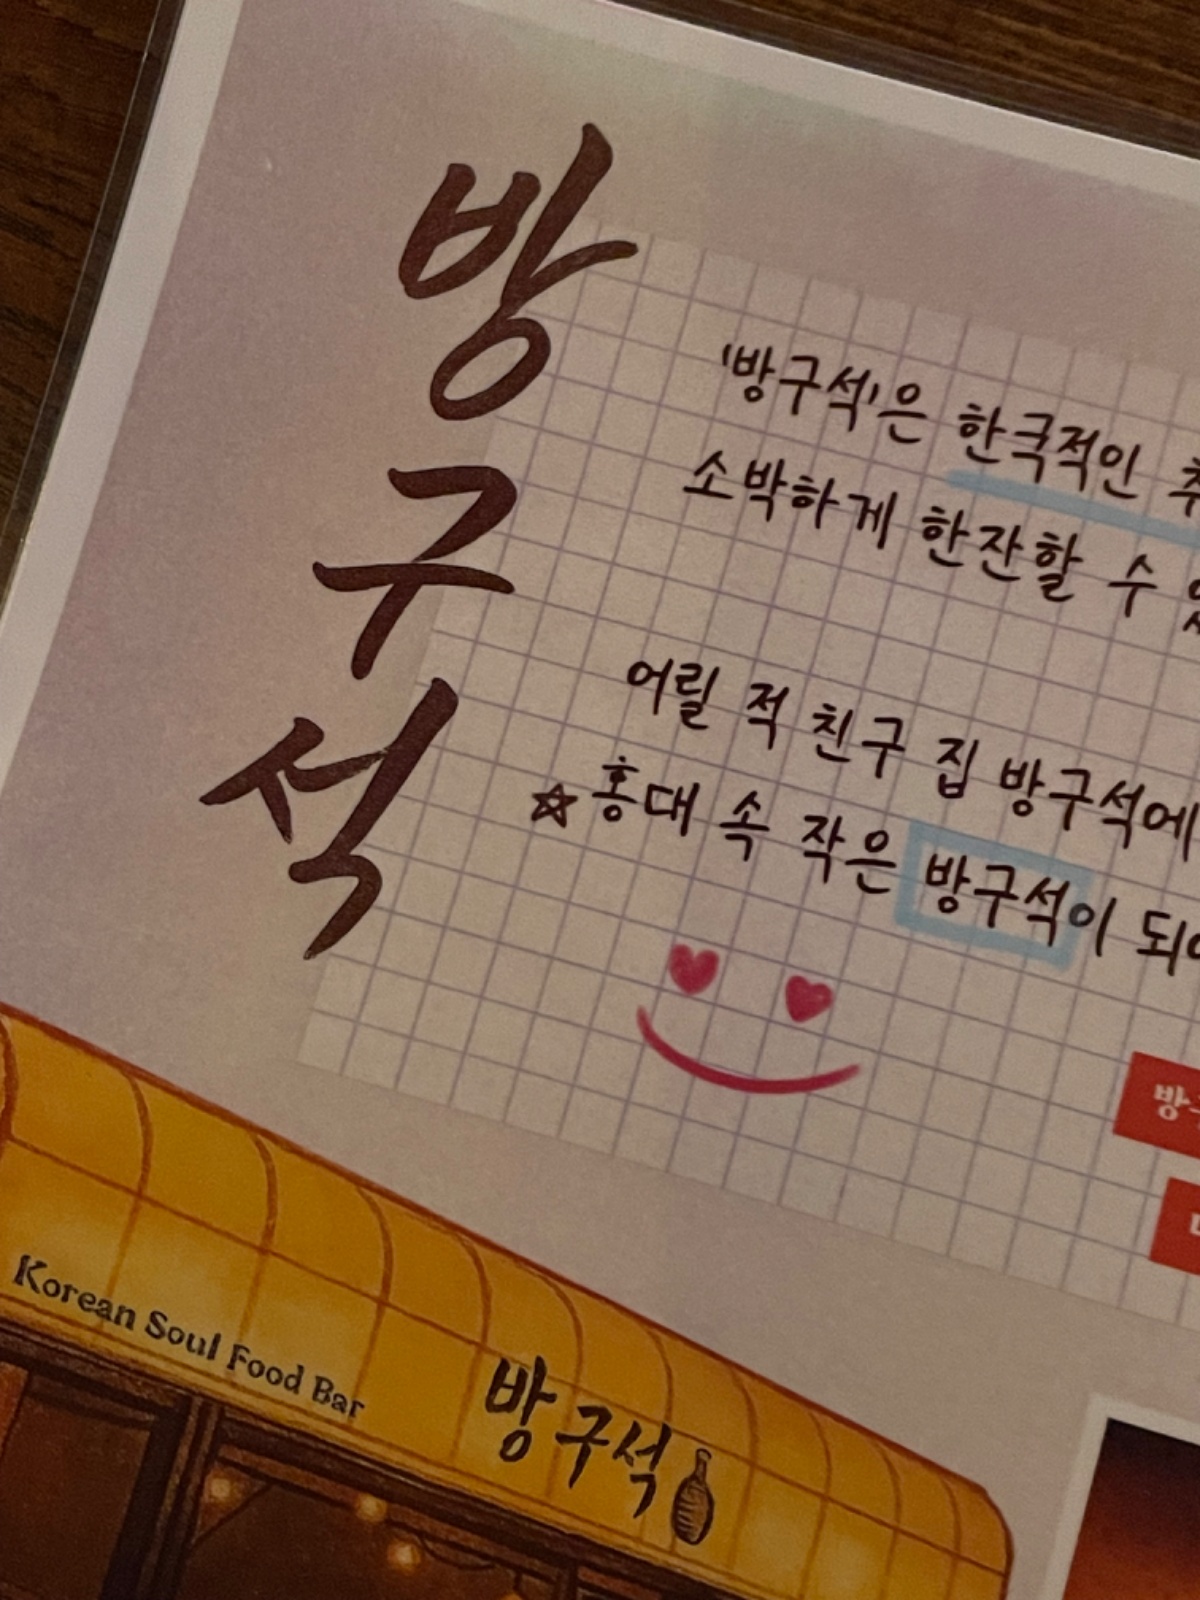 방구석
'방구석'은 한국적인
소박하게 한잔할 수
어릴 적 친구 집 방구석에
☆홍대 속 작은 방구석이
Korean Soul Food Bar
방구석